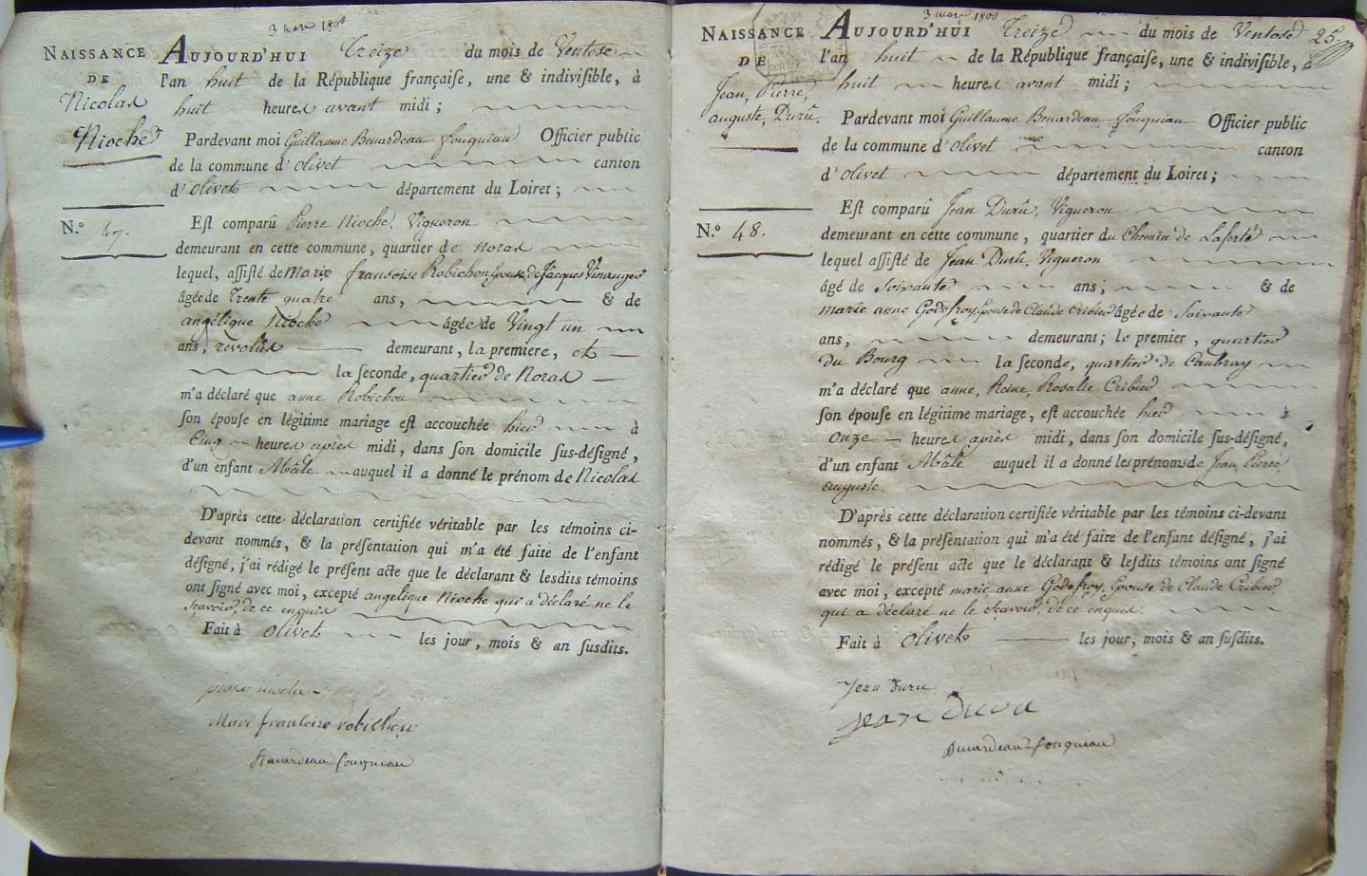 3 mars 1800
NAISSANCE
DE
Nicolas
Nioche
N.º 47.
AUJOURD'HUI Treize du mois de Ventose
l'an huit de la République françaiſe, une & indiviſible, à
huit heures avant midi ;
Pardevant moi Guillaume Benardeau Fouqueau Officier public
de la commune d'Olivet canton
d'Olivet département du Loiret ;
Eſt comparû Pierre Nioche, Vigneron
demeurant en cette commune, quartier de Noras
lequel, aſſiſté de Marie franſoise Robichon, Epouse de Jacques
âgée de Trente quatre ans, & de
angélique Nioche âgée de Vingt un
ans, révolus demeurant, la première, et
la ſeconde, quartier de Noras
m'a déclaré que anne Robichon
ſon épouſe en légitime mariage eſt accouchée hier à
Cinq heures après midi, dans ſon domicile ſus-déſigné,
d'un enfant Mâle auquel il a donné le prénom de Nicolas
D'après cette déclaration certifiée véritable par les témoins ci-
devant nommés, & la préſentation qui m'a été faite de l'enfant
déſigné, j'ai rédigé le préſent acte que le déclarant & leſdits témoins
ont ſigné avec moi, excepté angélique Nioche qui a déclaré ne le
Sçavoir, de ce enquis
Fait à Olivet les jour, mois & an ſuſdits.
Marie franſoise robichon
Benardeau fouqueau
3 mars 1800
25
NAISSANCE
DE
Jean, Pierre,
auguste, Durû.
N.º 48.
AUJOURD'HUI Treize du mois de Ventose
l'an huit de la République françaiſe, une & indiviſible, à
huit heures avant midi ;
Pardevant moi Guillaume Benardeau Fouqueau Officier public
de la commune d'Olivet canton
d'Olivet département du Loiret ;
Eſt comparû Jean Durû, Vigneron
demeurant en cette commune, quartier du Chemin de Laferté
lequel aſſiſté de Jean Durû, Vigneron
âgé de Soixante ans ; & de
marie anne Godefroy, épouse de Claude Cribier âgée de Soixante
ans, demeurant ; le premier, quartier
du Bourg la ſeconde, quartier de Caubray
m'a déclaré que anne, Reine, Rosalie Cribier
ſon épouſe en légitime mariage, eſt accouchée hier à
Onze heures après midi, dans ſon domicile ſus-déſigné,
d'un enfant Mâle auquel il a donné les prénoms de Jean, Pierre
auguste
D'après cette déclaration certifiée véritable par les témoins ci-devant
nommés, & la préſentation qui m'a été faite de l'enfant déſigné, j'ai
rédigé le préſent acte que le déclarant & leſdits témoins ont ſigné
avec moi, excepté marie anne Godefroy, Epouse de Claude Cribier
qui a déclaré ne le Sçavoir, de ce enquis.
Fait à Olivet les jour, mois & an ſuſdits.
Jean Duru
jean Duru
Benardeau fouqueau